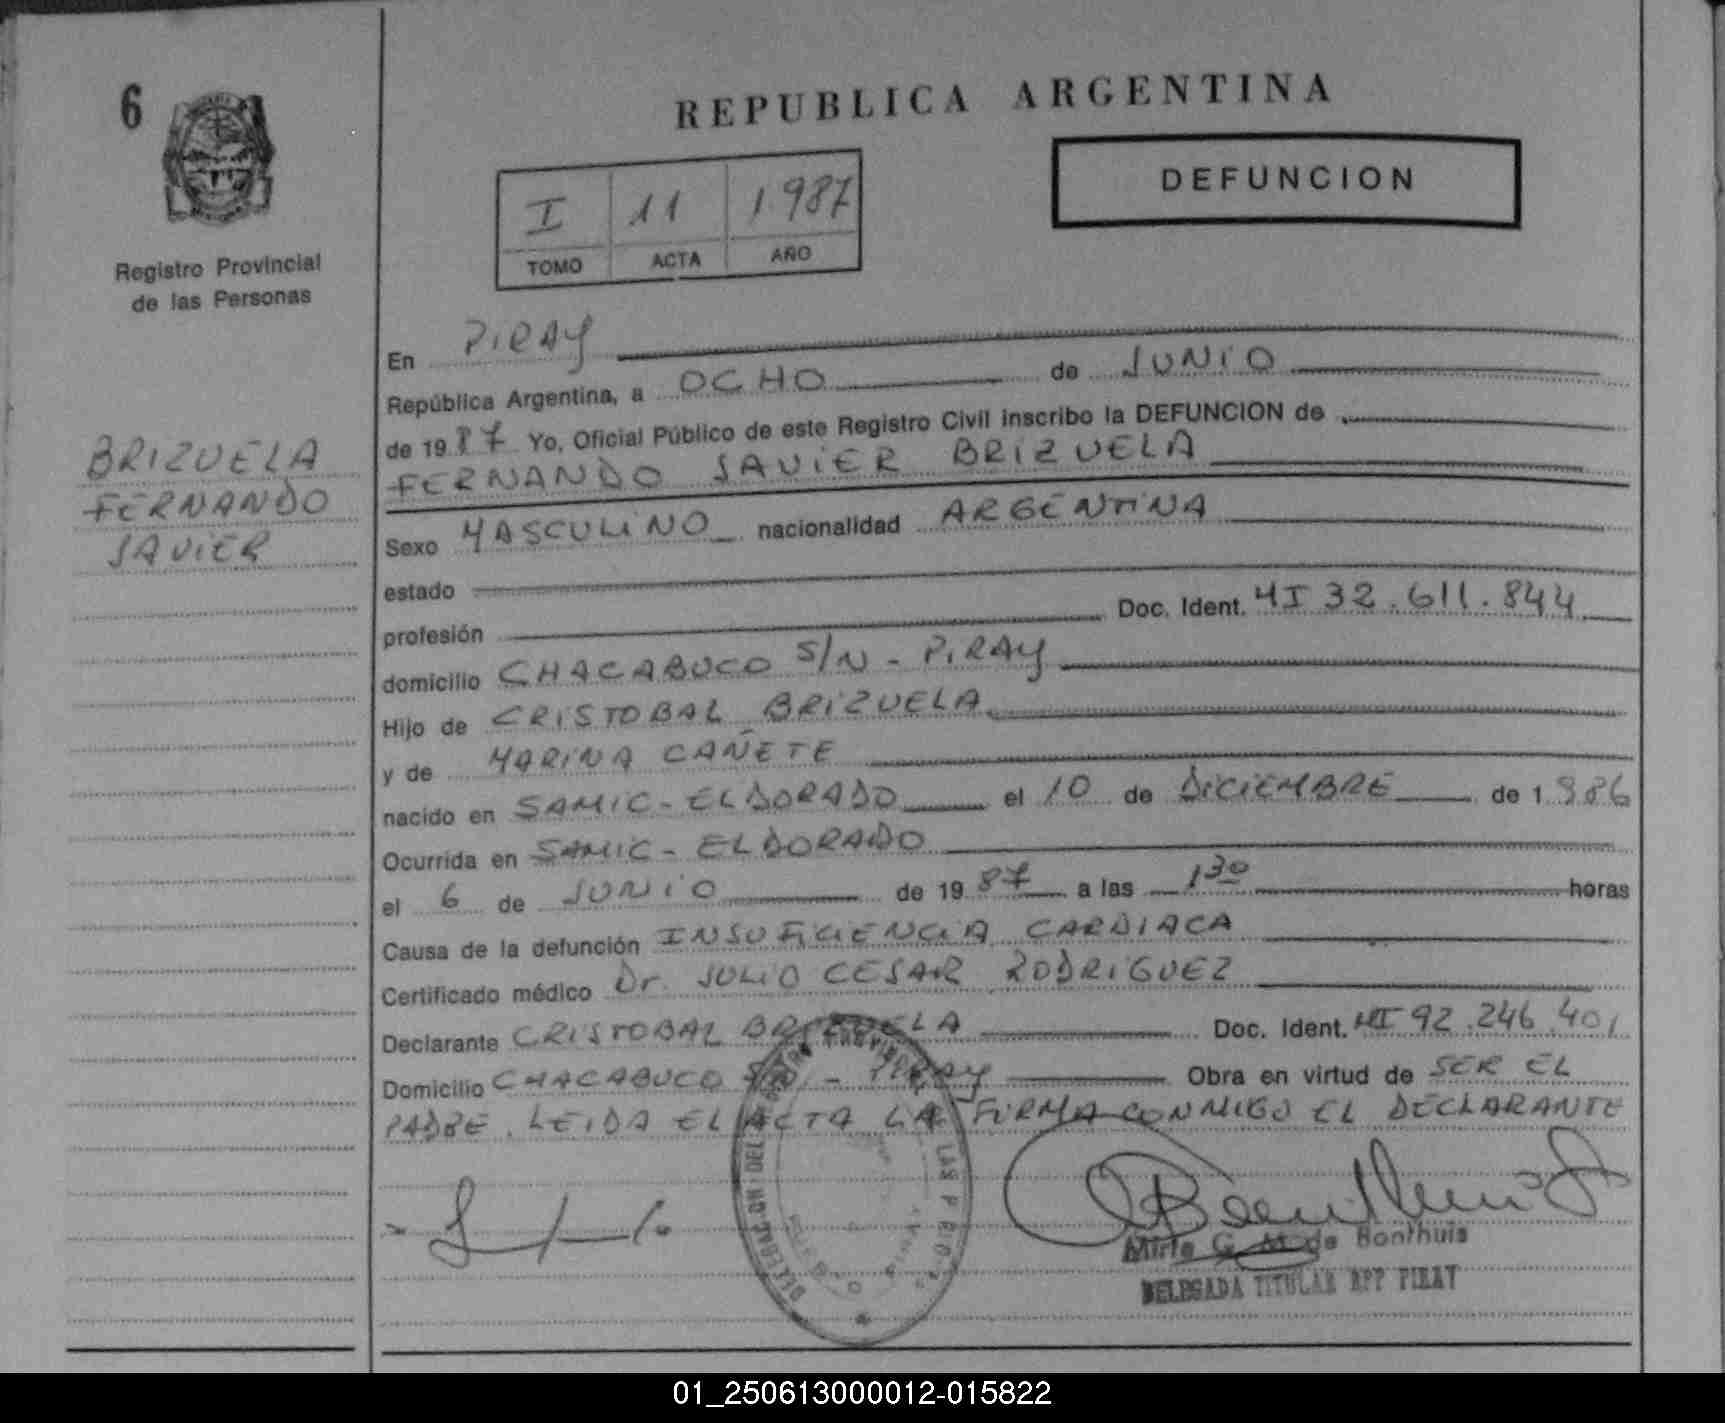 6
REPUBLICA ARGENTINA
DEFUNCION
I 11 1.987
TOMO ACTA AÑO
Registro Provincial
de las Personas
BRIZUELA
FERNANDO
JAVIER
En PIRAY
República Argentina, a OCHO de JUNIO
de 1987 Yo, Oficial Público de este Registro Civil inscribo la DEFUNCION de
FERNANDO JAVIER BRIZUELA
Sexo MASCULINO nacionalidad ARGENTINA
estado
profesión Doc. Ident. MI 32.611.844
domicilio CHACABUCO S/N - PIRAY
Hijo de CRISTOBAL BRIZUELA
y de MARINA CAÑETE
nacido en SAMIC - ELDORADO el 10 de DICIEMBRE de 1986
Ocurrida en SAMIC - ELDORADO
el 6 de JUNIO de 1987 a las 1 30 horas
Causa de la defunción INSUFICIENCIA CARDIACA
Certificado médico Dr. JULIO CESAR RODRIGUEZ
Declarante CRISTOBAL BRIZUELA Doc. Ident. MI 92.246.401
Domicilio CHACABUCO S/N - PIRAY Obra en virtud de SER EL
PADRE. LEIDA EL ACTA LA FIRMA CONMIGO EL DECLARANTE
DELEGACION DEL LAS
Mirta G. M. de Bonthuis
DELEGADA TITULAR RPP PIRAY
01_250613000012-015822